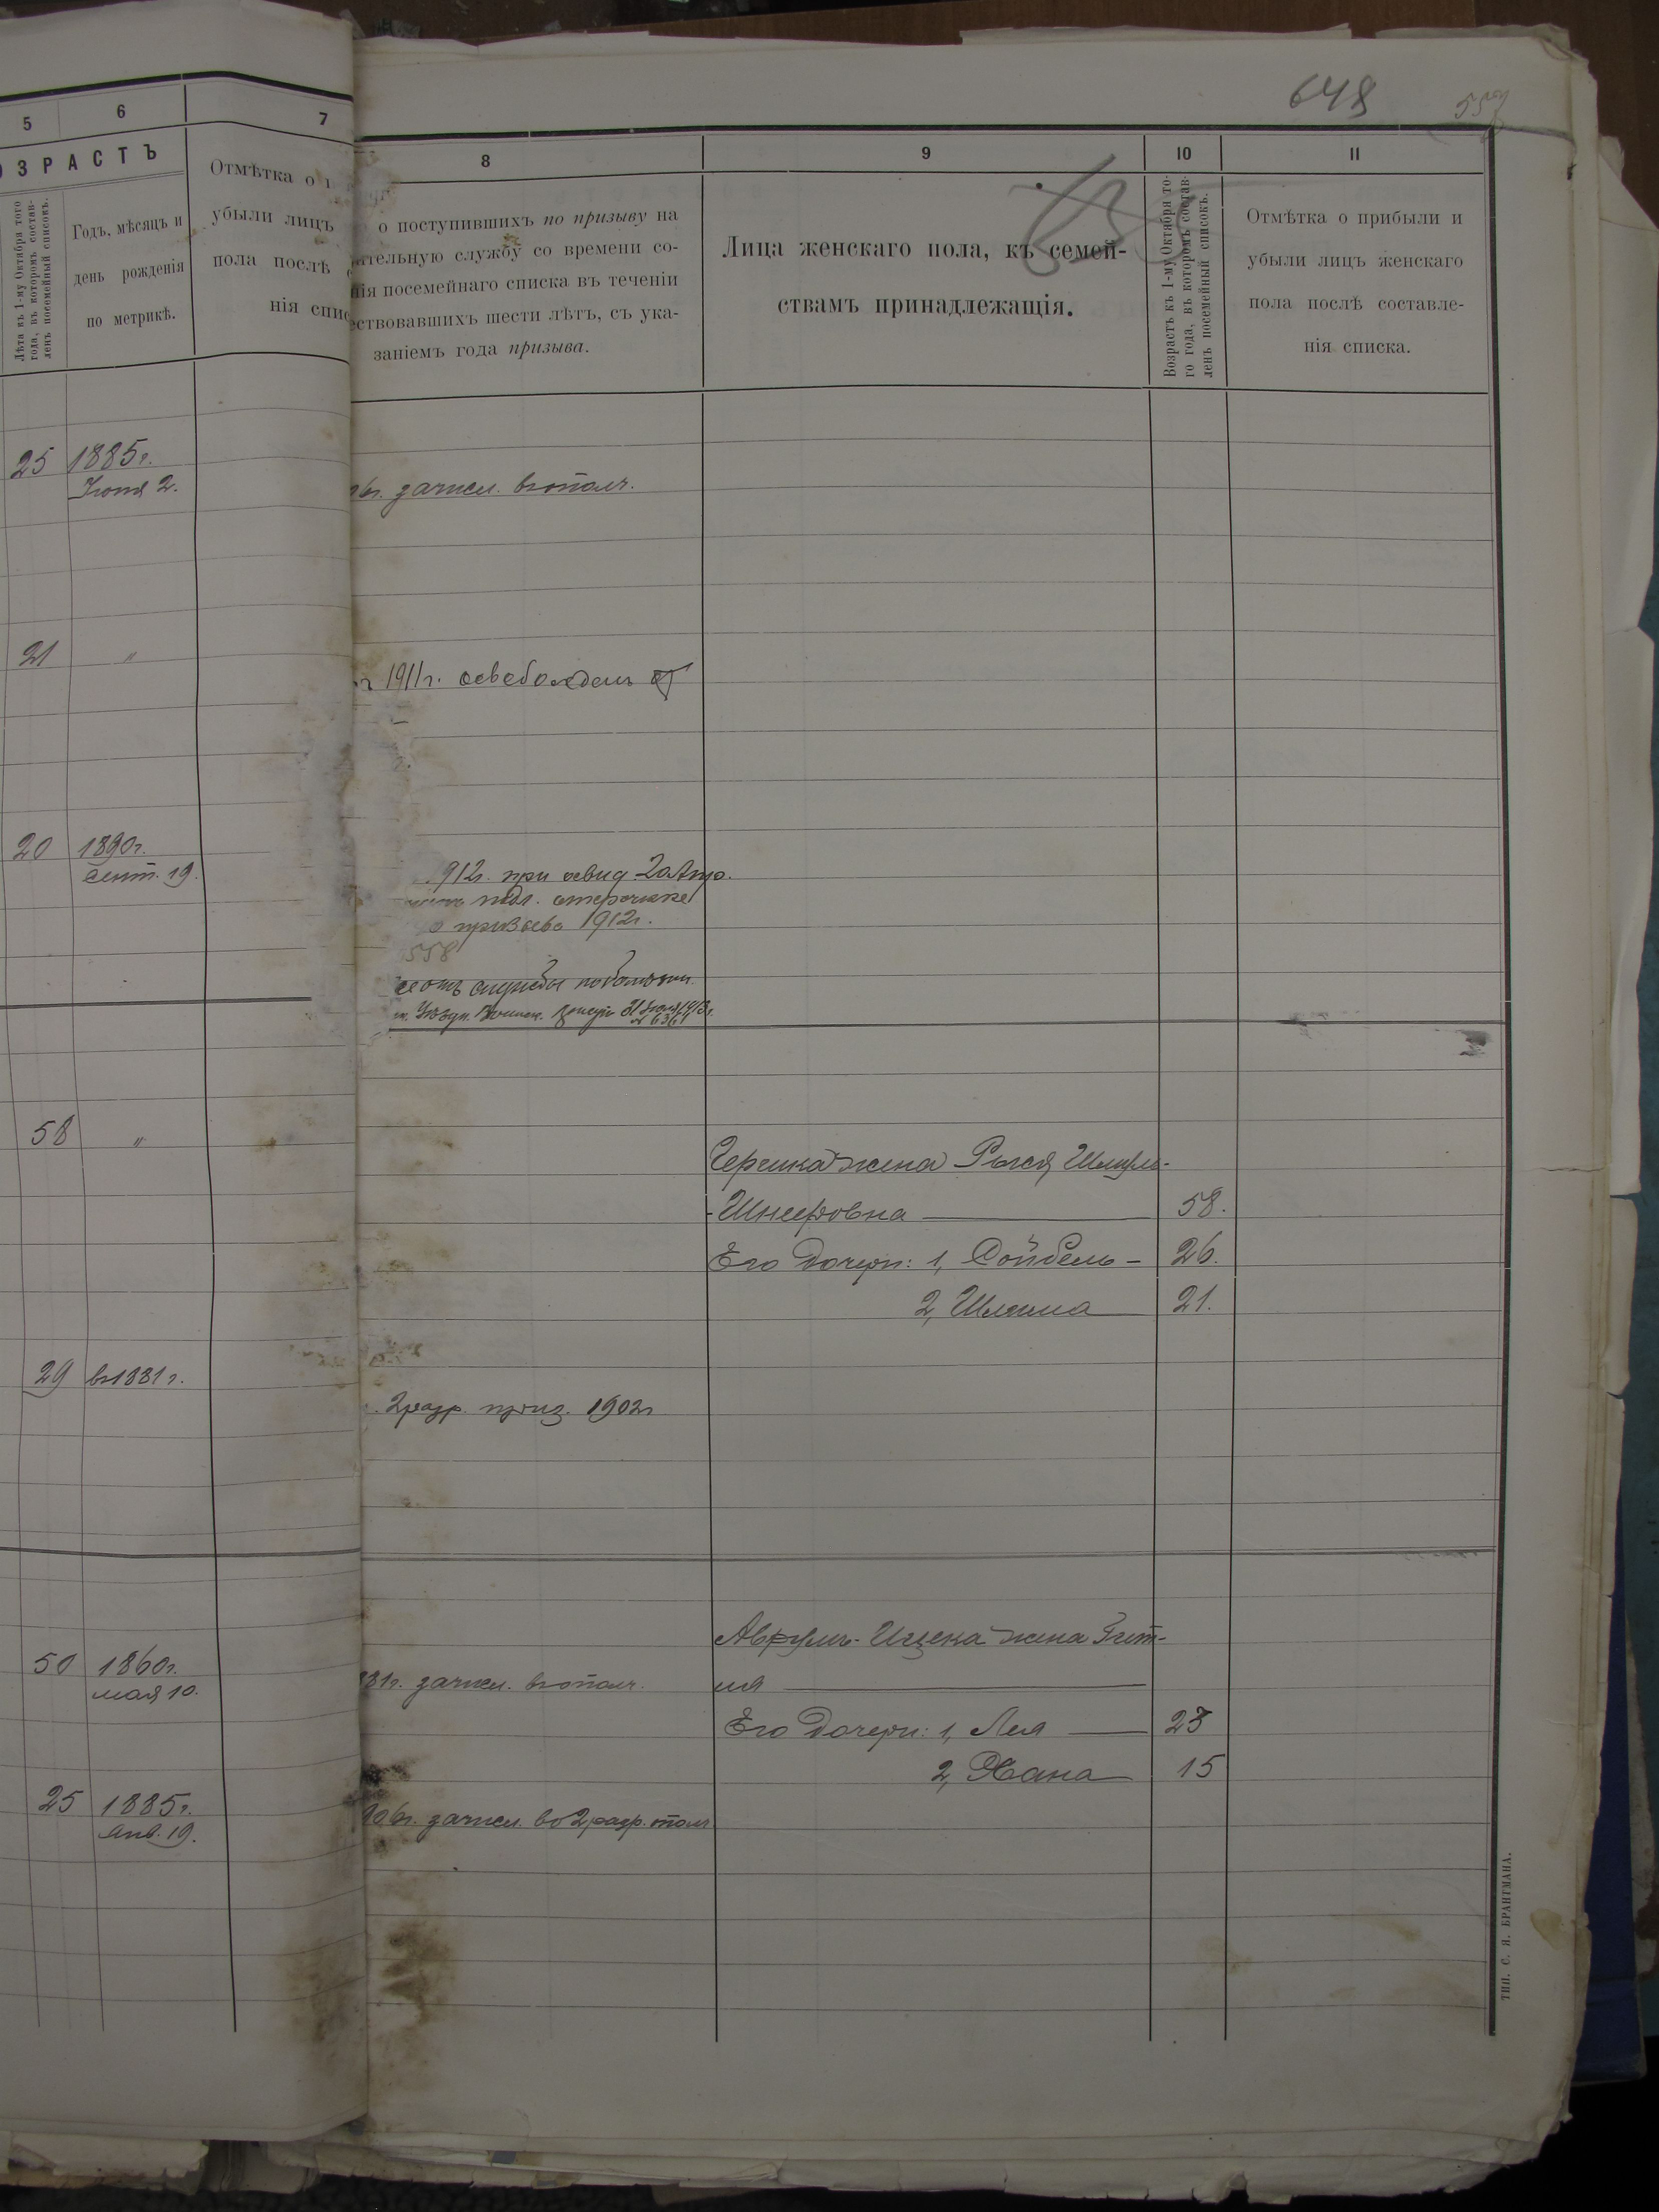 648
557
5
6
7
ОЗРАСТЪ
Отмѣтка о
убыли лицъ
пола послѣ
нія спис
Лѣта къ 1-му Октября того
года, въ которомъ состав-
ленъ посемейный списокъ.
Годъ, мѣсяцъ и
день рожденія
по метрикѣ.
8
9
10
11
о поступившихъ по призыву на
ательную службу со времени со-
нія посемейнаго списка въ теченіи
ествовавшихъ шести лѣтъ, съ ука-
заніемъ года призыва.
Лица женскаго пола, къ семей-
ствамъ принадлежащія.
Возрастъ къ 1-му Октября то-
го года, въ которомъ состав-
ленъ посемейный списокъ.
Отмѣтка о прибыли и
убыли лицъ женскаго
пола послѣ составле-
нія списка.
25 1885г.
Іюня 2.
06г. зачисл. въ ополч.
21 "
1911г. освобожденъ
20 1890г.
Сент. 19.
912г. при освид.
подл. отсрочке
призыва 1912г.
558
отъ службы
31 1913г.
№ 6361
58 "
Гершка жена Рыся Шмуль-
-Шнееровна — 58.
Его дочери: 1, Сойбель — 26.
2, Шлима — 21.
29 въ 1881г.
2 разр. приз. 1902г
Аврумъ-Ицека жена Гит-
ля —
50 1860г.
мая 10.
81г. зачисл. въ ополч.
Его дочери: 1, Лея — 23
2, Хана — 15
25 1885г.
Янв. 19.
906г. зачисл. во 2 разр. ополч
ТИП. С. Я. БРАНТМАНА.